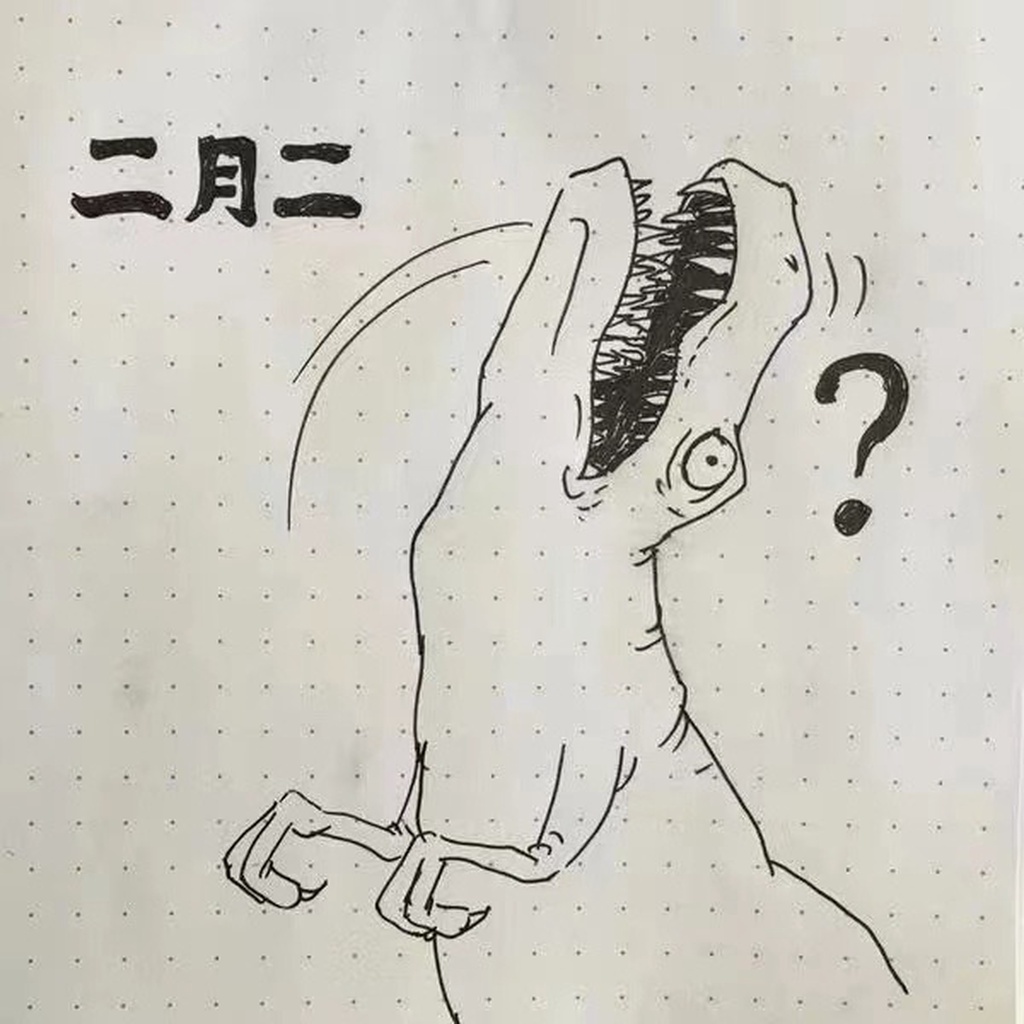 二月二
?